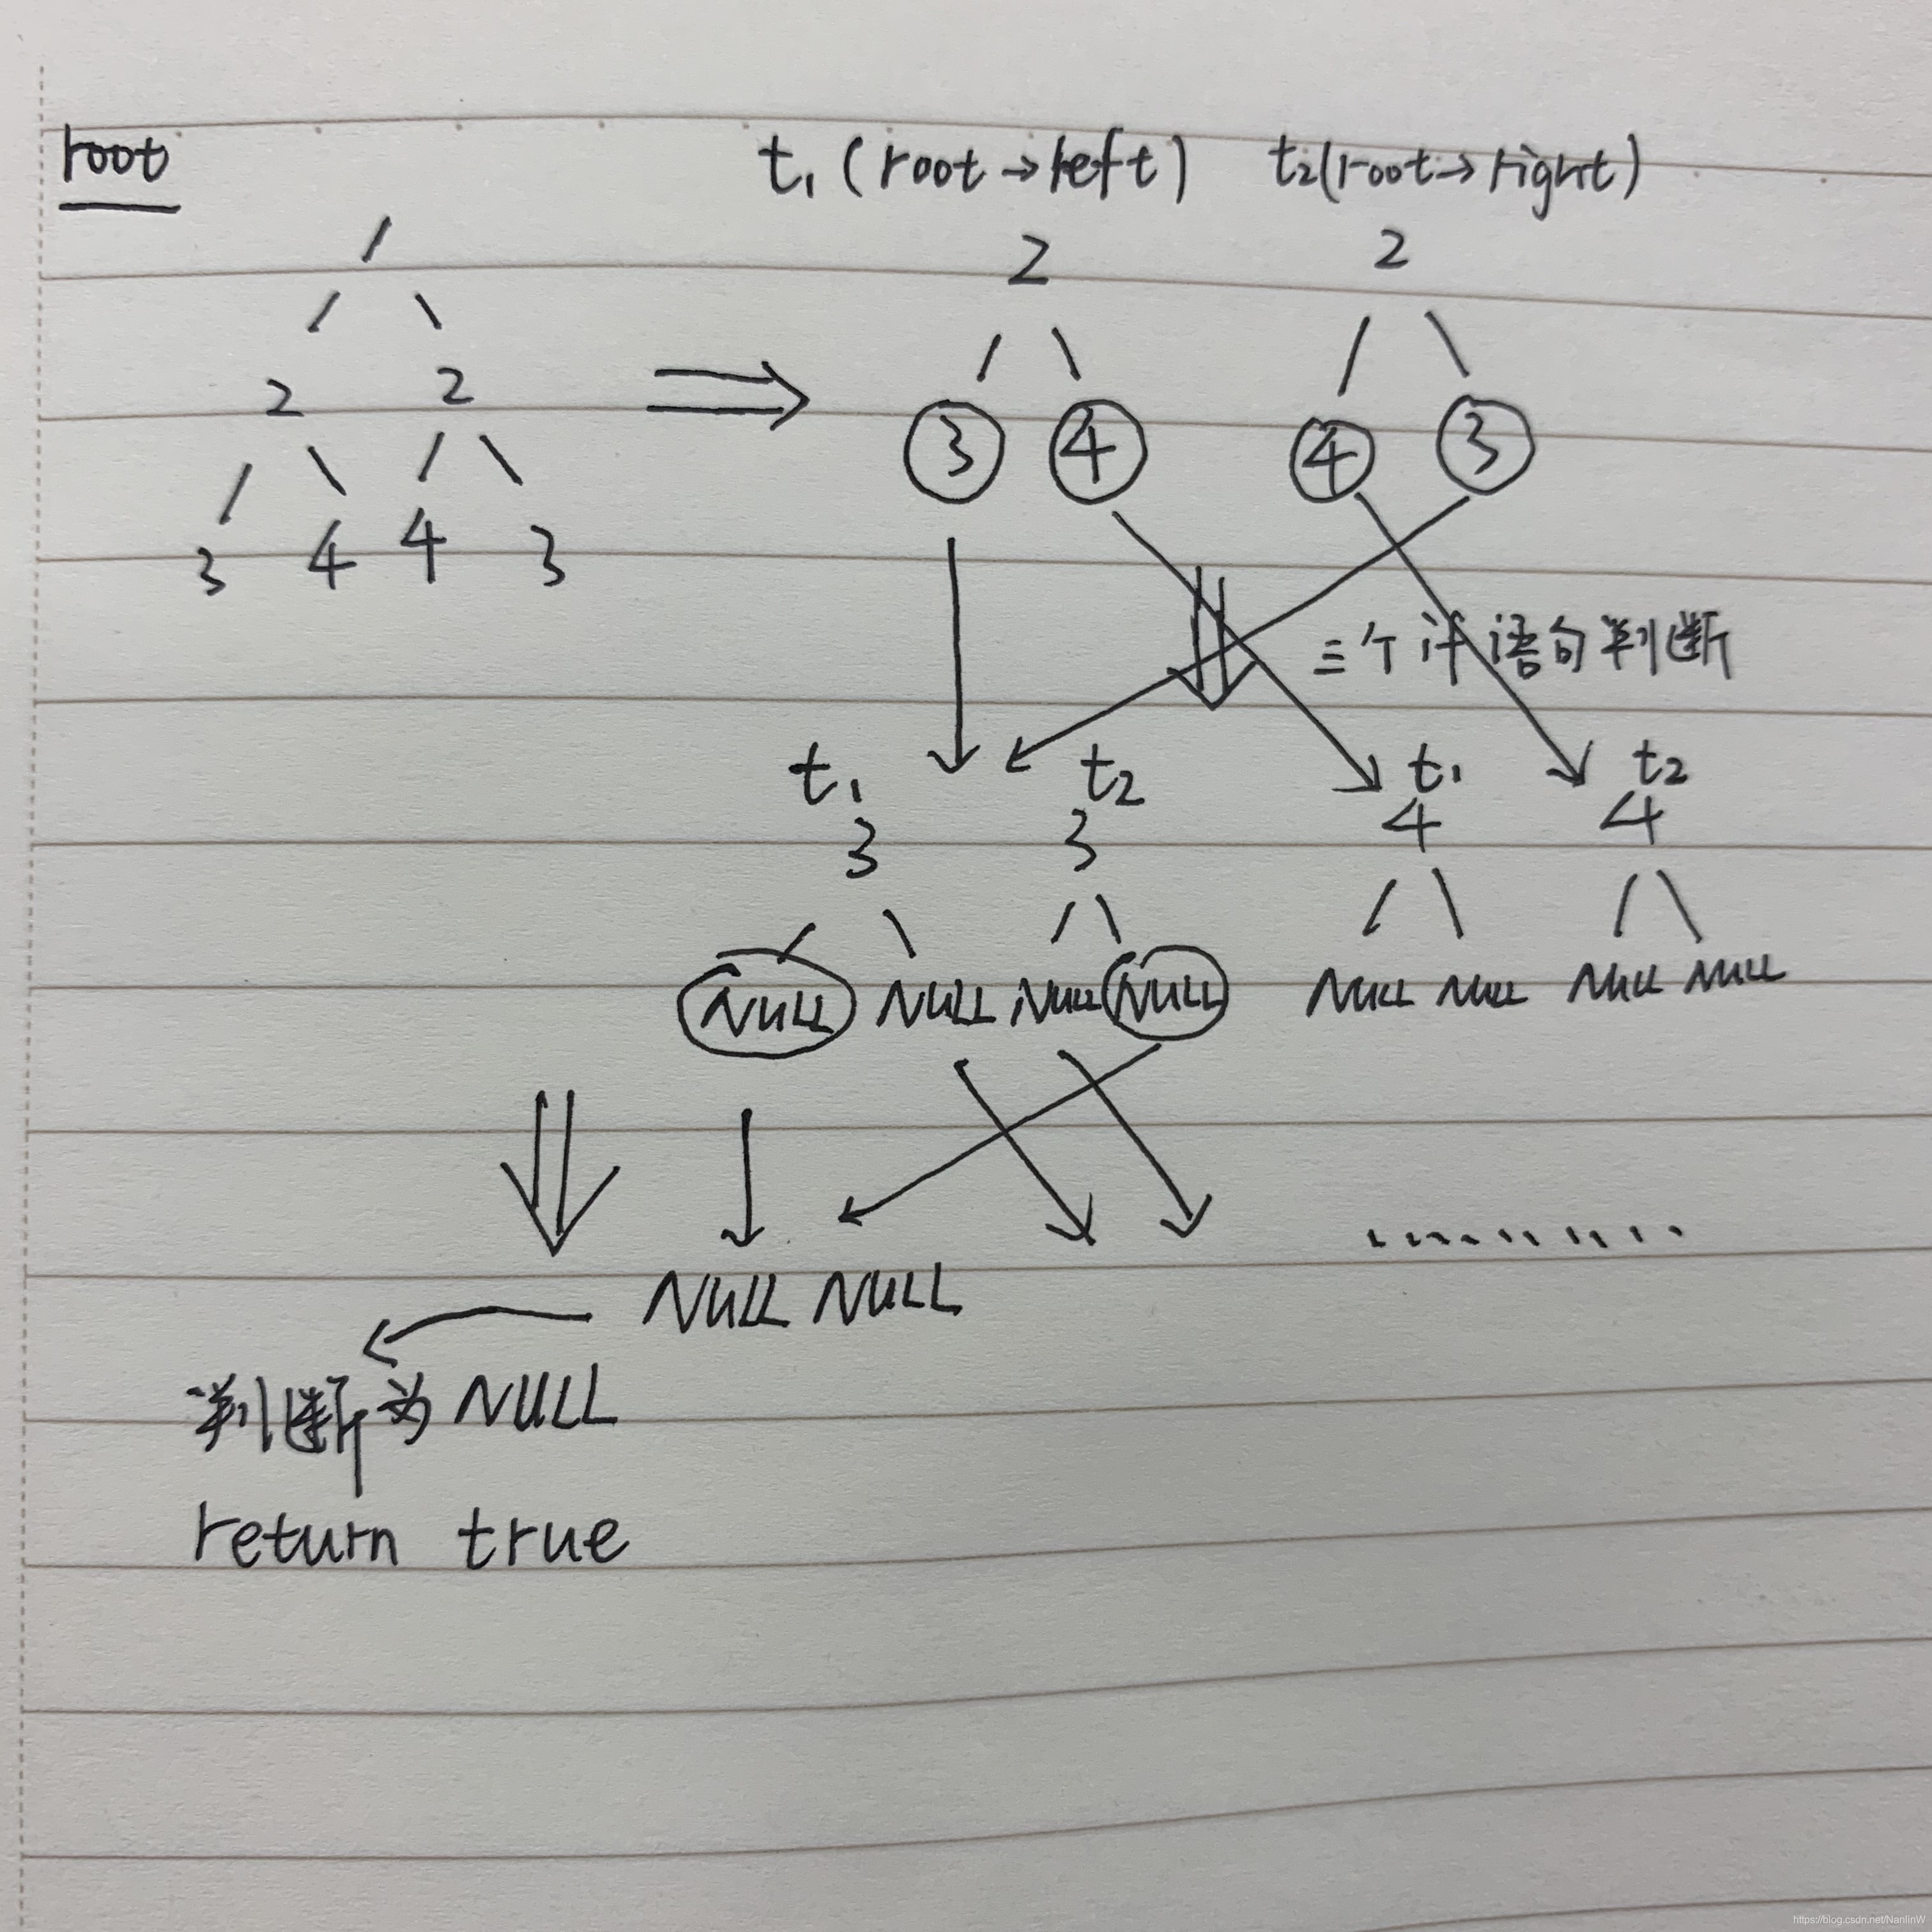 root t₁(root→left) t₂(root→right)
1 2 2
2 2 3 4 4 3
3 4 4 3
三个if语句判断
t₁ t₂ t₁ t₂
3 3 4 4
NULL NULL NULL NULL NULL NULL NULL NULL
.........
NULL NULL
判断为NULL
return true
https://blog.csdn.net/NanlinW